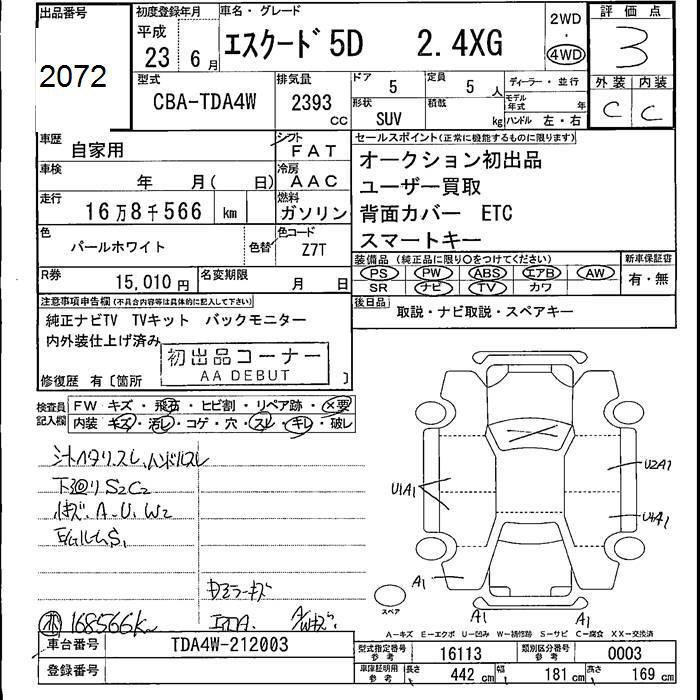 出品番号
2072
初度登録年月
平成
23 6月
車名・グレード
エスクード5D 2.4XG
2WD
・
4WD
評価点
3
型式
CBA-TDA4W
排気量
2393
CC
ドア
5
定員
5 人
形状
SUV
積載
kg
ディーラー・並行
モデル年式 年
ハンドル 左・右
外装 内装
C C
車歴
自家用
シフト
FAT
車検
年 月( 日)
冷房
AAC
走行
16万8千566 km
燃料
ガソリン
色
パールホワイト
色替
色コード
Z7T
R券
15,010円
名変期限
月 日
セールスポイント(正常に機能するものに限ります)
オークション初出品
ユーザー買取
背面カバー ETC
スマートキー
装備品(純正品に限り〇をつけてください)
PS PW ABS エアB AW
SR ナビ TV カワ
新車保証書
有・無
後日品
取説・ナビ取説・スペアキー
注意事項申告欄(不具合内容等は具体的に記入して下さい)
純正ナビTV TVキット バックモニター
内外装仕上げ済み
初出品コーナー
AA DEBUT
修復歴 有〔箇所 〕
検査員記入欄
FW キズ・飛石・ヒビ割・リペア跡・×要
内装 キズ・汚レ・コゲ・穴・スレ・キレ・破レ
下廻りS2C2
A.U.W2
168566k
U1A1
U2A1
U1A1
A1
A1
A1
スペア
A-キズ E-エクボ U-凹み W-補修跡 S-サビ C-腐食 XX-交換済
車台番号
TDA4W-212003
登録番号
型式指定番号 参考
16113
類別区分番号 参考
0003
車庫証明用 参考
長さ 442 cm
幅 181 cm
高さ 169 cm